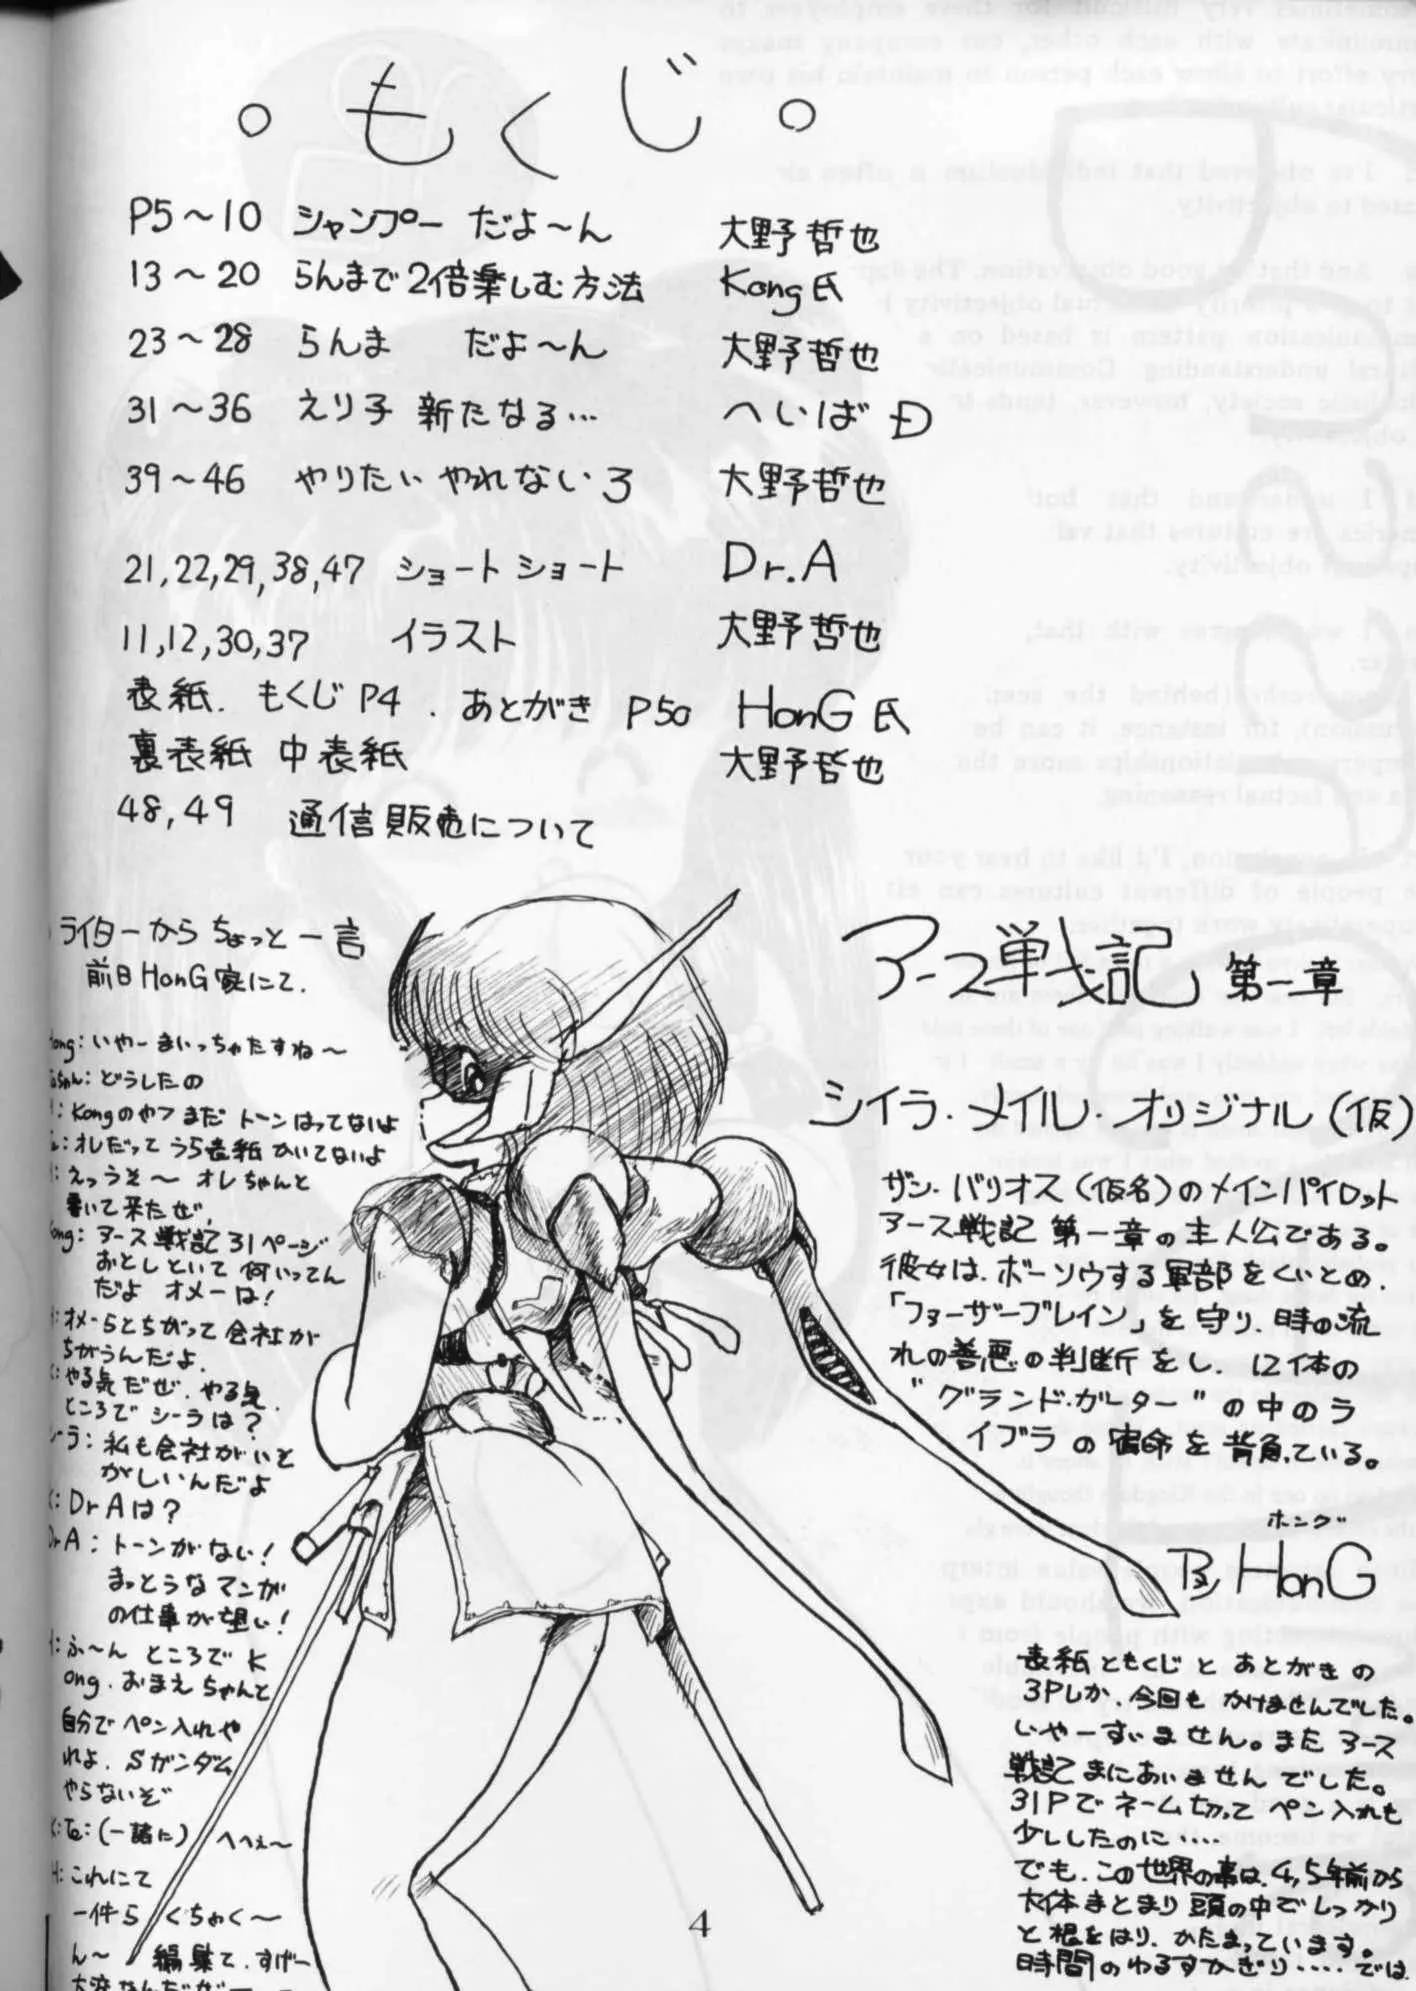 。もくじ。
P5～10 シャンプー だよ～ん 大野哲也
13～20 らんまで2倍楽しむ方法 Kong氏
23～28 らんま だよ～ん 大野哲也
31～36 えり子 新たなる… へいばĐ
39～46 やりたい やれない3 大野哲也
21,22,29,38,47 ショートショート Dr.A
11,12,30,37 イラスト 大野哲也
表紙. もくじP4. あとがきP50 HonG氏
裏表紙 中表紙 大野哲也
48,49 通信販売について
ライターからちょっと一言
前日HonG家にて.
ong: いやーまいっちゃたすね～
ちゃん: どうしたの
: Kongのやつまだトーンはってないよ
: オレだってうら表紙かいてないよ
: えっうそ～ オレちゃんと
書いて来たぜ.
ong: アース戦記31ページ
おとしといて何いってん
だよ オメーは!
: オメーらとちがって会社が
ちがうんだよ.
: やる気だぜ.やる気.
ところでシーラは?
ーラ: 私も会社がいそ
がしいんだよ
K: DrAは?
DrA: トーンがない!
まっとうなマンガ
の仕事が望い!
: ふ～ん ところでK
ong.おまえちゃんと
自分でペン入れや
れよ.Sガンダム
やらないぞ
: (一諸に) へへぇ～
H: これにて
一件ら くちゃく～
ん～ 編集て.すげー
大変なんだぜー
アース戦記」第一章
シイラ・メイル・オリジナル(仮)
ザン・バリオス(仮名)のメインパイロット
アース戦記 第一章の主人公である。
彼女は、ボーソウする軍部をくいとめ、
「フォーザーブレイン」を守り、時の流
れの善悪の判断をし、に体の
"グランド・ガーター"の中のラ
イブラの宿命を背負っている。
ホング
By HonG
表紙ともくじとあとがきの
3Pしか今回もかけませんでした。
いやーすいません。またアース
戦記まにあいませんでした。
31Pでネーム切ってペン入れも
少ししたのに‥‥
でも、この世界の事は、4,5年前から
大体まとまり頭の中でしっかり
と根をはり、かたまっています。
時間のゆるすかぎり‥‥では
4